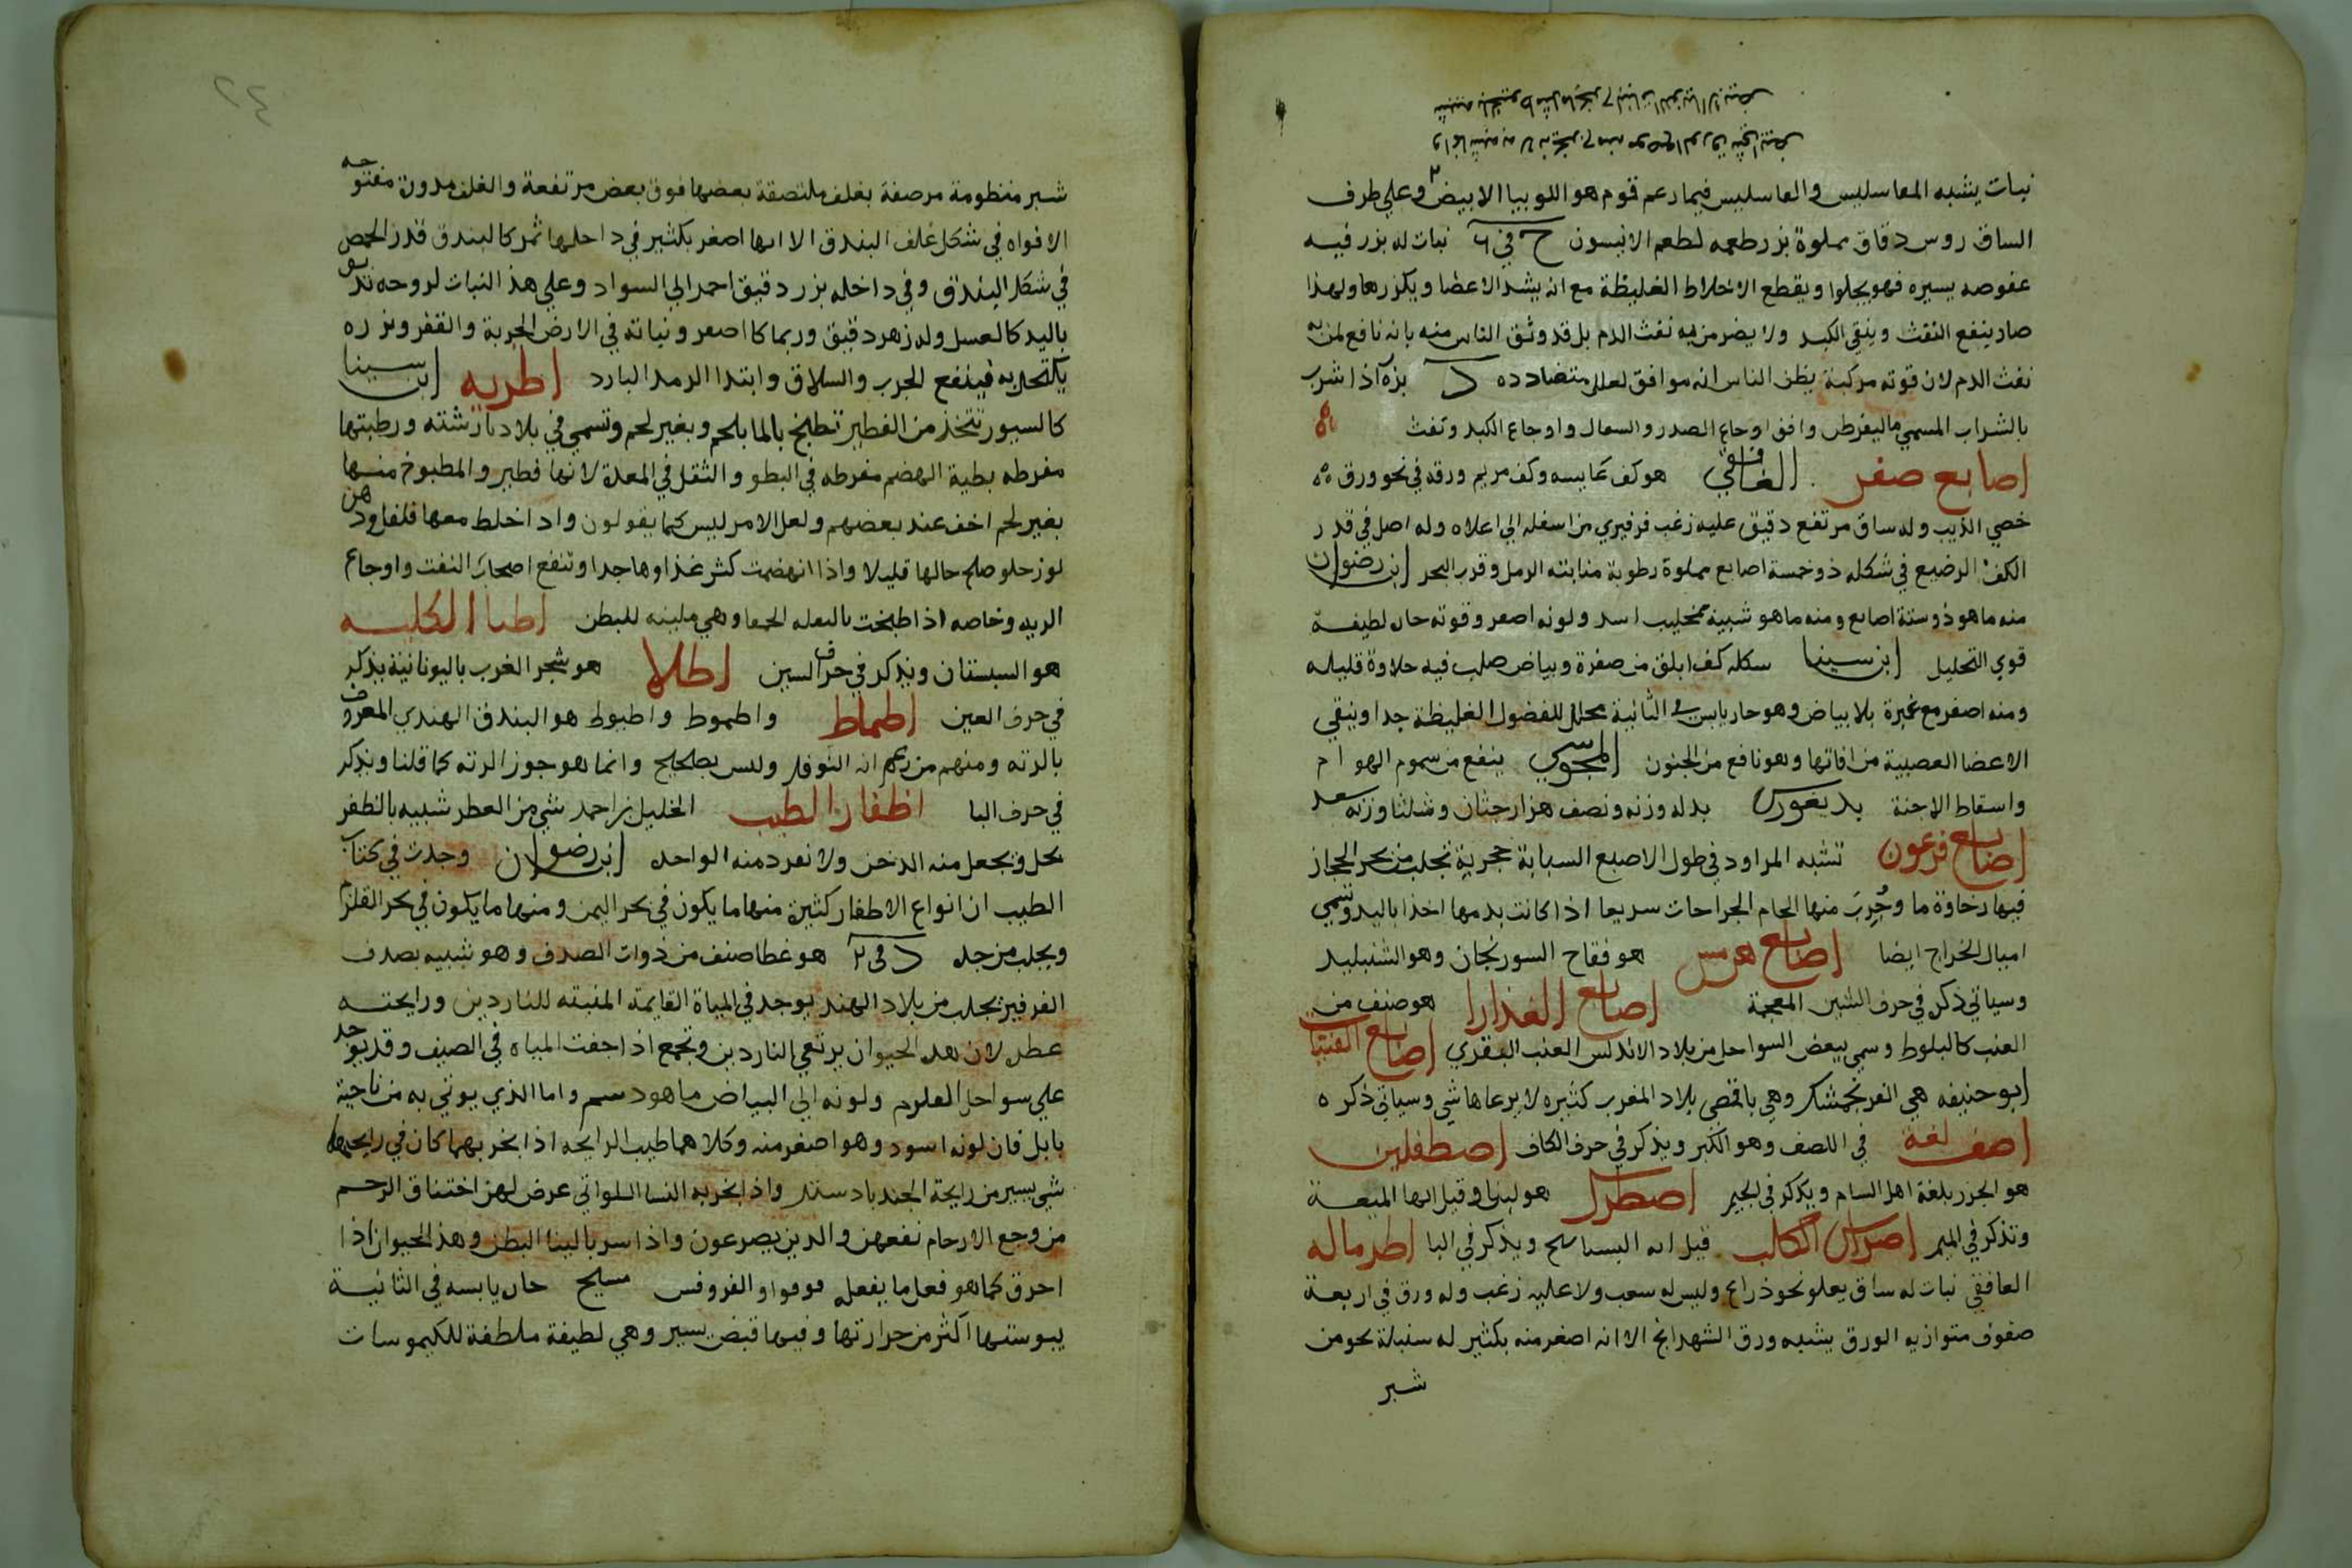 شبيه بالخيوط مثل ما يخرج لنبات اللوبيا الابيض
وانما شبه به لانه يخرج منه موضع الورق شي ابيض
نبات يشبه المقاسليس والفاسليس فيما زعم قوم هو اللوبيا الابيض وعلي طرف
الساق روس دقاق مملوة بزر طعمه لطعم الانيسون ج في ٦ نبات له بزر فيه
عفوصه يسيره فهو يجلوا ويقطع الاخلاط الغليظة مع انه يشد الاعضا ويكزرها ولهذا
صار ينفع النفث وينقي الكبد ولا يضر من به نفث الدم بل قد وثق الناس منه بانه نافع لمن به
نفث الدم لان قوته مركبة يظن الناس انه موافق لعلل متضادده د بزره اذا شرب
بالشراب المسمي ماليقرطن وافق اوجاع الصدر والسعال واوجاع الكبد ونفث
اصابع صفر الغافقي هو كف عايسه وكف مريم ورقه في نحو ورق ه
خصي الذيب وله ساق مرتفع دقيق عليه زغب فرفيري من اسفله الي اعلاه وله اصل في قدر
الكف الرضيع في شكله ذو خمسة اصابع مملوة رطوبة منابته الرمل وقرب البحر ابن رضوان
منه ما هو ذو ستة اصابع ومنه ما هو شبيه بمخليب اسد ولونه اصفر وقوته حار لطيفة
قوي التحليل ابن سينا شكله كف ابلق من صفرة وبياض صلب فيه حلاوة قليله
ومنه اصفر مع غبرة بلا بياض وهو حار يابس في الثانية محلل للفضول الغليظة جدا وينقي
الاعضا العصبية من افاتها وهو نافع من الجنون المجوسي ينفع من سموم الهوام
واسقاط الاجنة بديغورس بدله وزنه ونصف هزارجشان وثلثا وزنه سعد
اصابع فرعون تشبه المراود في طول الاصبع السبابة حجرية تجلب من بحر الحجاز
فيها رخاوة ما وجرب منها الحام الجراحات سريعا اذا كانت بدمها اخذا باليد وتسمي
اميال الخراج ايضا اصابع هرمس هو فقاح السورنجان وهو الشنبليد
وسياتي ذكره في حرف الشين المعجمة اصابع العذارا هو صنف من
العنب كالبلوط وسمي ببعض السواحل من بلاد الاندلس العنب البقري اصابع الفتيات
ابو حنيفه هي الفرنجمشك وهي باقصي بلاد المغرب كثيره لا يرعاها شي وسياتي ذكره
اصف لغة في اللصف وهو الكبر ويذكر في حرف الكاف اصطفلين
هو الجزر بلغة اهل الشام ويذكر في الجيم اصطرك هو لبنا وقيل انها الميعة
وتذكر في الميم اضراس الكلب قيل انه البسباسح ويذكر في البا اطرماله
الغافقي نبات له ساق يعلو نحو ذراع وليس له شعب ولا عليه زغب وله ورق في اربعة
صفوف متوازيه الورق يشبه ورق الشهدانج الا انه اصغر منه بكثير له سنبلة نحو من
شبر
شبر منظومة مرصفة بغلف ملتصقة بعضها فوق بعض مرتفعة والغلف مدورة مفتوحه
الافواه في شكل غلف البندق الا انها اصغر بكثير في داخلها ثمر كالبندق قدر الحمص
في شكل البندق وفي داخله بزر دقيق احمر الي السواد وعلي هذ النبات لزوجه تدبق
باليد كالعسل وله زهر دقيق وربما كا اصفر ونباته في الارض الحربة والقفر وبزره
يكتحل به فينفع الجرب والسلاق وابتدا الرمد البارد اطريه ابن سينا
كالسيور تتخذ من الفطير تطبخ بالما بلحم وبغير لحم وتسمي في بلادنا رشته ورطبتها
مفرطه بطية الهضم مفرطه في البطو والثقل في المعدة لانها فطير والمطبوخ منها
بغير لحم اخف عند بعضهم ولعل الامر ليس كما يقولون واذا خلط معها فلفل ودهن
لوز حلو صلح حالها قليلا واذا انهضمت كثر غذاوها جدا وتنفع اصحاب النفث واوجاع
الريه وخاصه اذا طبخت بالبقله الحمقا وهي ملينه للبطن اطبا الكلبه
هو السبستان ويذكر في حرف السين اطلا هو شجر الغرب باليونانية يذكر
في حرف العين اطماط واطموط واطيوط هو البندق الهندي المعروف
بالرته ومنهم من زعم انه النوفلر وليس بصحيح وانما هو جوز الرته كما قلنا ويذكر
في حرف البا اظفار الطيب الخليل بن احمد شي من العطر شبيه بالظفر
يحل ويجعل منه الدخن ولا تفرد منه الواحد ابن رضوان وجدت في كتاب
الطيب ان انواع الاظفار كثيرة منها ما يكون في بحر اليمن ومنها ما يكون في بحر القلزم
ويجلب من جده د في ٢ هو غطا صنف من ذوات الصدف وهو شبيه بصدف
الفرفير يجلب من بلاد الهند يوجد في المياة القايمة المنبته للناردين ورايحته
عطر لان هذ الحيوان يرتعي الناردين ويجمع اذا جفت المياه في الصيف وقد يوجد
علي سواحل القلزم ولونه الي البياض ما هو دسم واما الذي يوتي به من ناحية
بابل فان لونه اسود وهو اصغر منه وكلاهما طيب الرايحه اذا بخر بهما كان في رايحتهما
شي يسير من رايحة الجندبادستر واذا بخر به النسا اللواتي عرض لهن اختناق الرحم
من وجع الارحام نفعهن والذين يصرعون واذا شربا لينا البطن وهذ الحيوان اذا
احرق كما هو فعل ما يفعله فوفوا والفروفس مسيح حار يابسه في الثانية
يبوستها اكثر من حرارتها وفيها قبض يسير وهي لطيفة ملطفة للكيموسات